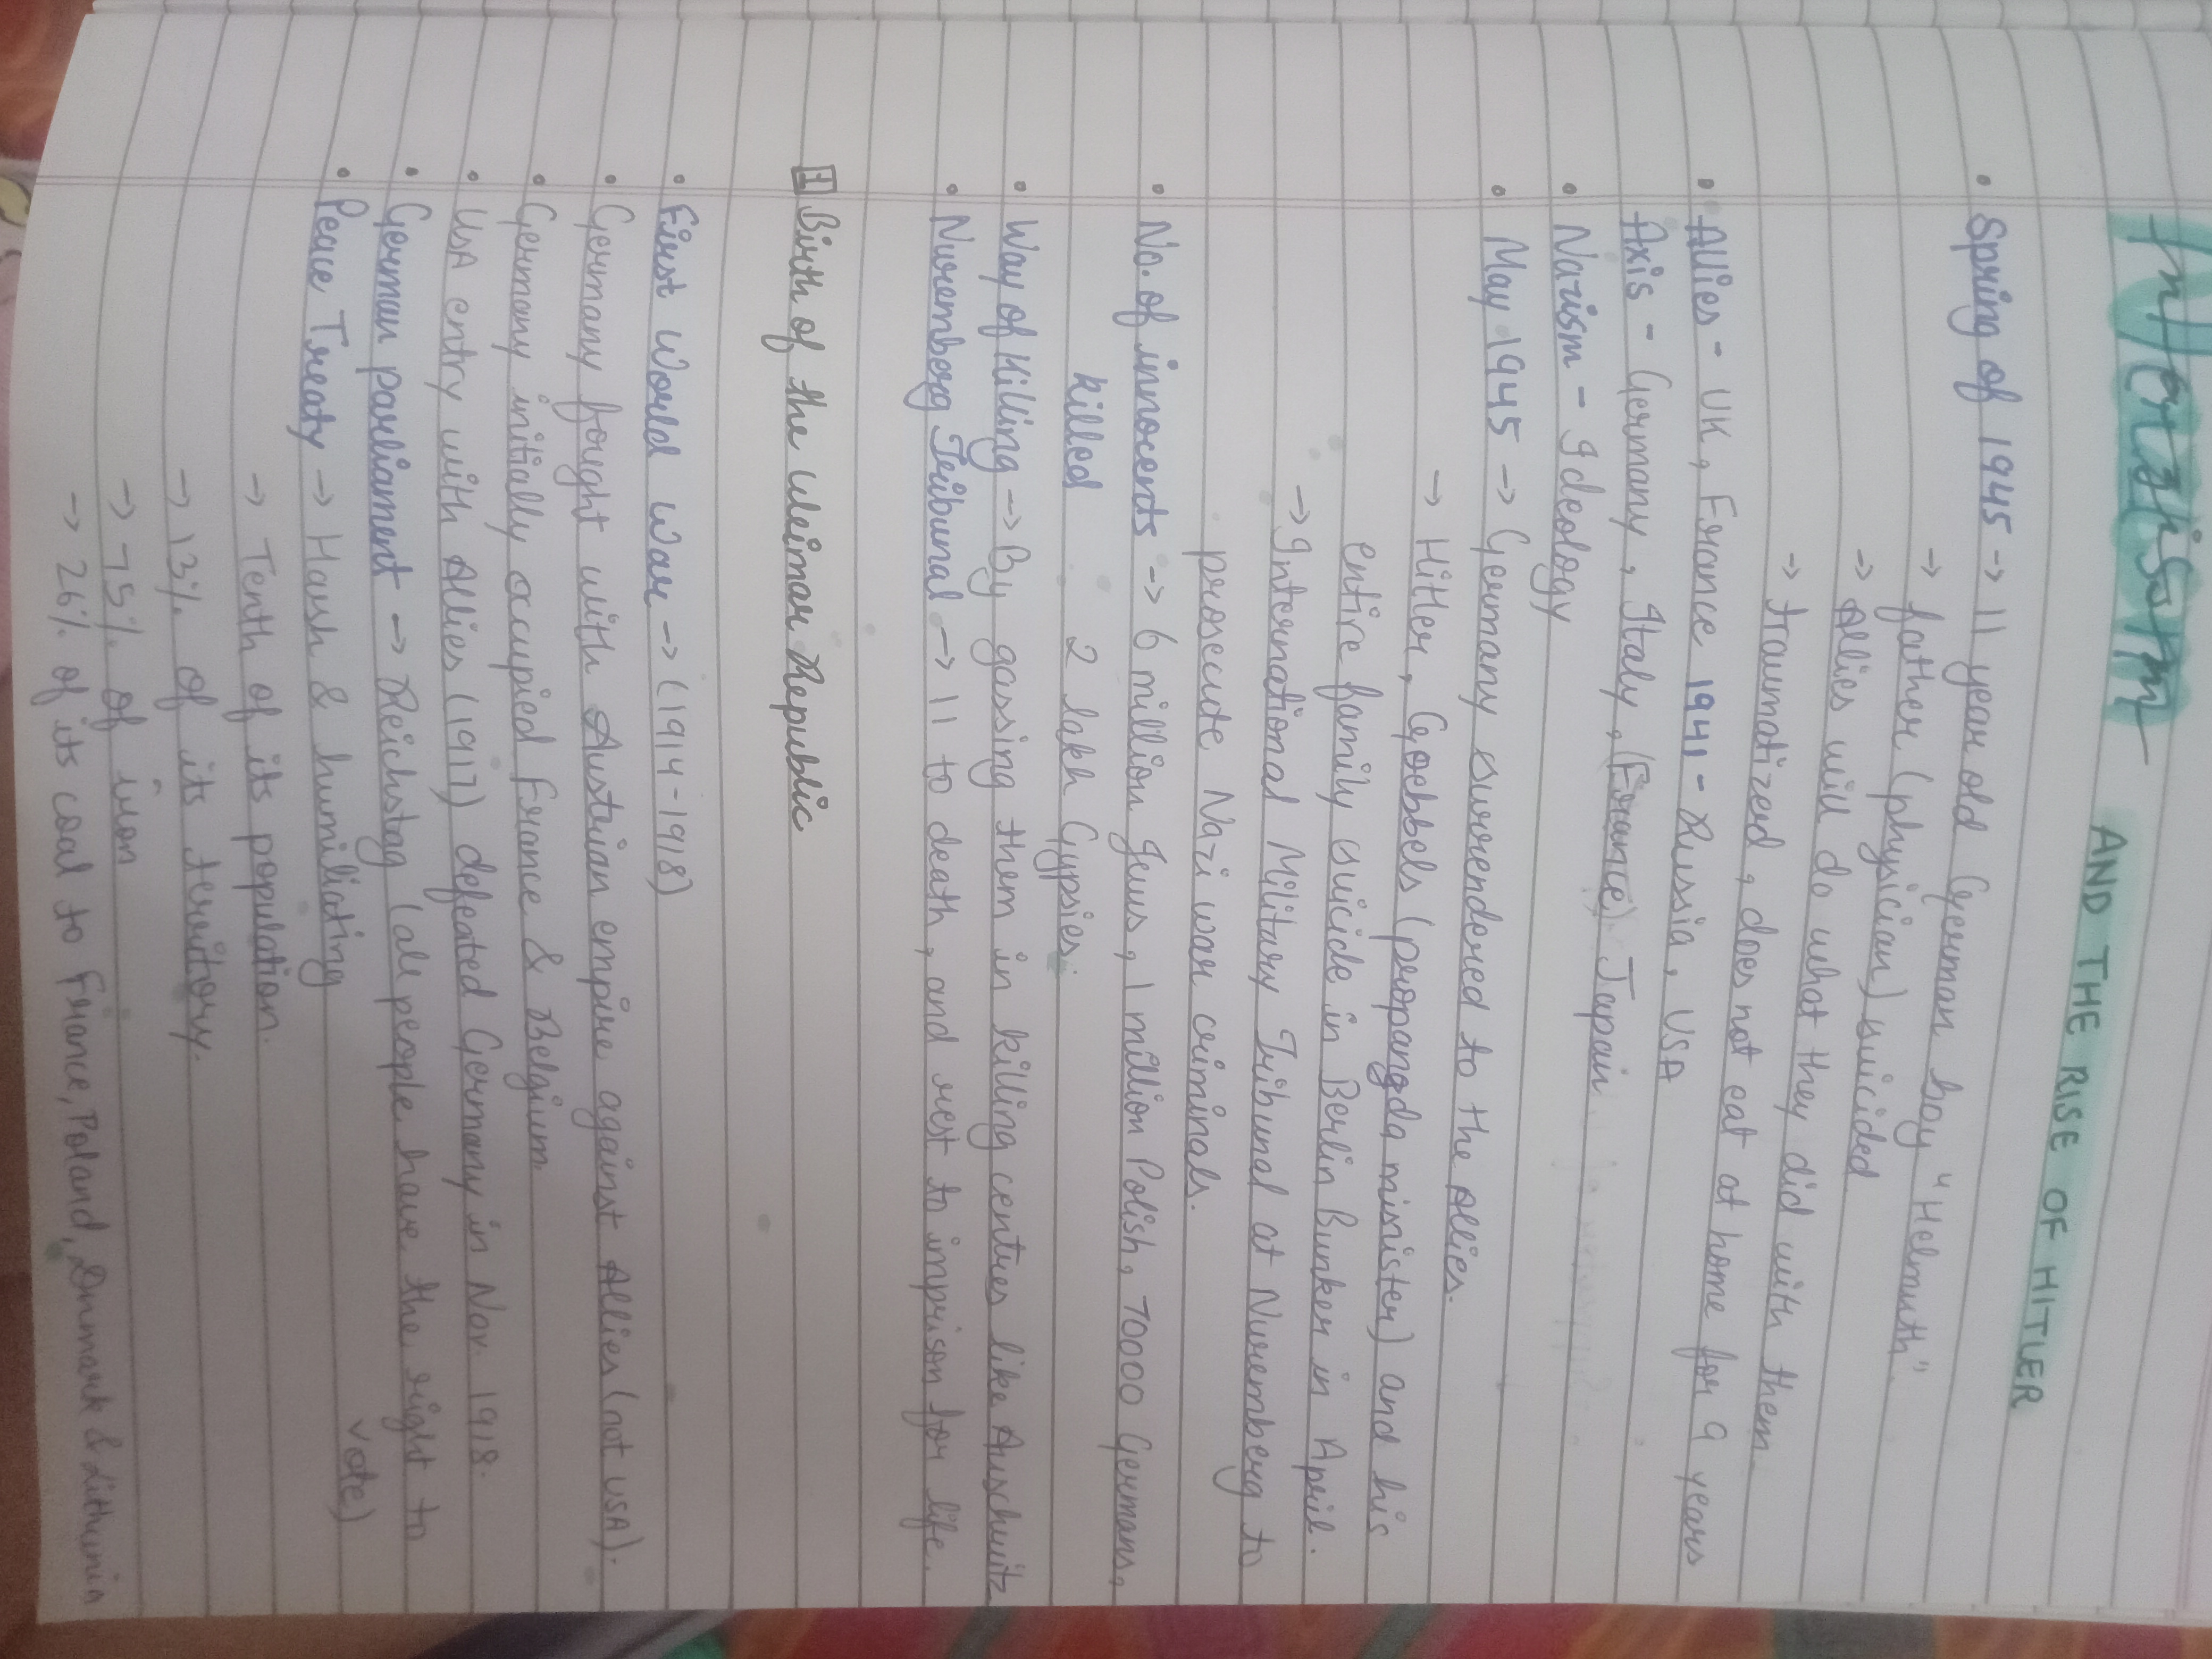 Nazism AND THE RISE OF HITLER
• Spring of 1945 → 11 year old German boy "Helmuth".
→ father (physician) suicided
→ Allies will do what they did with them.
→ traumatized, does not eat at home for 9 years
• Allies - UK, France 1941 - Russia, USA
Axis - Germany, Italy, (France) Japan
• Nazism - Ideology
• May 1945 → Germany surrendered to the Allies.
→ Hitler, Goebbels (propangda minister) and his
entire family suicide in Berlin Bunker in April.
→ International Military Tribunal at Nuremberg to
prosecute Nazi war criminals.
• No. of innocents → 6 million Jews, 1 million Polish, 70000 Germans,
killed 2 lakh Gypsies.
• Way of killing → By gassing them in killing centres like Auschwitz
• Nuremberg Tribunal → 11 to death, and rest to inprison for life.
1 Birth of the Weimar Republic
• First World War → (1914-1918)
• Germany fought with Austrian empire against Allies (not USA).
• Germany initially occupied France & Belgium
• USA entry with Allies (1917) defeated Germany in Nov. 1918.
• German parliament → Reichstag (all people have the right to
vote)
• Peace Treaty → Harsh & humiliating
→ Tenth of its population.
→ 13% of its territory.
→ 75% of iron
→ 26% of its coal to France, Poland, Dnmark & Lithunia